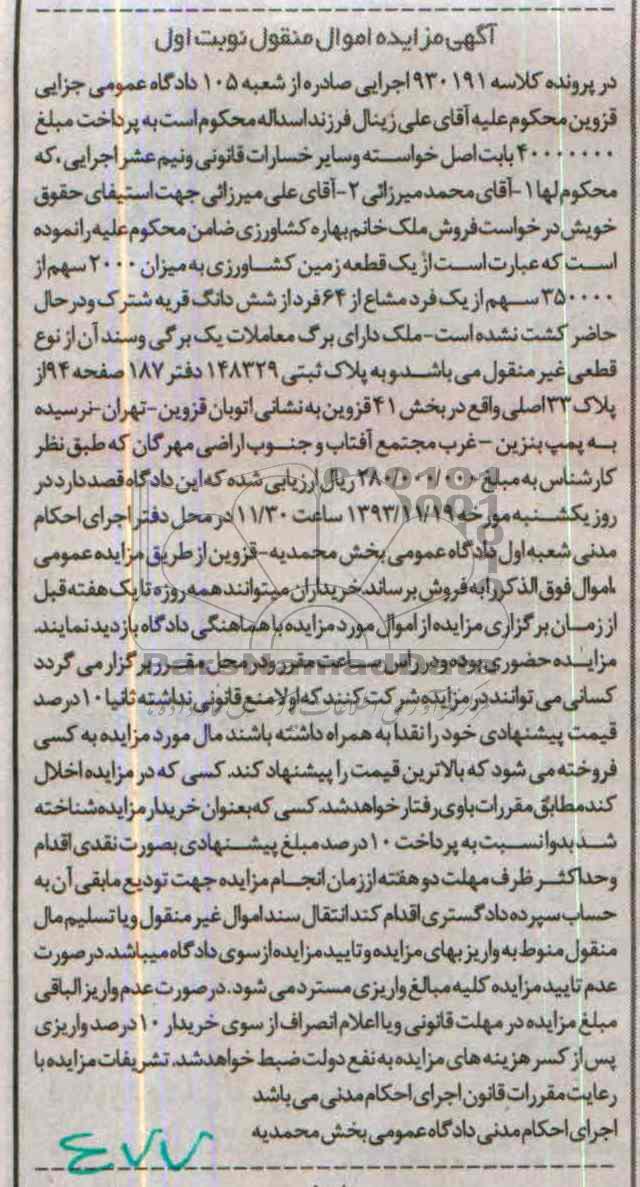 آگهی مزایده اموال منقول نوبت اول
در پرونده کلاسه ۹۳۰۱۹۱ اجرایی صادره از شعبه ۱۰۵ دادگاه عمومی جزایی
قزوین محکوم علیه آقای علی زینال فرزند اسداله محکوم است به پرداخت مبلغ
۴۰۰۰۰۰۰۰ بابت اصل خواسته وسایر خسارات قانونی ونیم عشر اجرایی ،که
محکوم لها ۱-آقای محمد میرزائی ۲-آقای علی میرزائی جهت استیفای حقوق
خویش درخواست فروش ملک خانم بهاره کشاورزی ضامن محکوم علیه را نموده
است که عبارت است از یک قطعه زمین کشاورزی به میزان ۲۰۰۰ سهم از
۳۵۰۰۰۰ سهم از یک فرد مشاع از ۶۴ فرد از شش دانگ قریه شترک ودر حال
حاضر کشت نشده است-ملک دارای برگ معاملات یک برگی وسند آن از نوع
قطعی غیر منقول می باشد.و به پلاک ثبتی ۱۴۸۳۲۹ دفتر ۱۸۷ صفحه ۹۴از
پلاک ۳۳اصلی واقع در بخش ۴۱ قزوین به نشانی اتوبان قزوین-تهران-نرسیده
به پمپ بنزین -غرب مجتمع آفتاب و جنوب اراضی مهرگان که طبق نظر
کارشناس به مبلغ ۲۸۰/۰۰۰/۰۰۰ ریال ارزیابی شده که این دادگاه قصد دارد در
روز یکشنبه مورخه ۱۳۹۳/۱۱/۱۹ ساعت ۱۱/۳۰ در محل دفتر اجرای احکام
مدنی شعبه اول دادگاه عمومی بخش محمدیه-قزوین از طریق مزایده عمومی
،اموال فوق الذکر را به فروش برساند.خریداران میتوانند همه روزه تا یک هفته قبل
از زمان برگزاری مزایده از اموال مورد مزایده با هماهنگی دادگاه بازدید نمایند.
مزایده حضوری بوده ودر راس ساعت مقرر ودر محل مقرر برگزار می گردد
کسانی می توانند در مزایده شرکت کنند که اولا منع قانونی نداشته ثانیا ۱۰ درصد
قیمت پیشنهادی خود را نقدا به همراه داشته باشند مال مورد مزایده به کسی
فروخته می شود که بالاترین قیمت را پیشنهاد کند. کسی که در مزایده اخلال
کند مطابق مقررات باوی رفتار خواهد شد. کسی که بعنوان خریدار مزایده شناخته
شد بدوا نسبت به پرداخت ۱۰ درصد مبلغ پیشنهادی بصورت نقدی اقدام
وحداکثر ظرف مهلت دو هفته از زمان انجام مزایده جهت تودیع مابقی آن به
حساب سپرده دادگستری اقدام کند انتقال سند اموال غیر منقول ویا تسلیم مال
منقول منوط به واریز بهای مزایده و تایید مزایده از سوی دادگاه میباشد. در صورت
عدم تایید مزایده کلیه مبالغ واریزی مسترد می شود . در صورت عدم واریز الباقی
مبلغ مزایده در مهلت قانونی ویا اعلام انصراف از سوی خریدار ۱۰ درصد واریزی
پس از کسر هزینه های مزایده به نفع دولت ضبط خواهد شد. تشریفات مزایده با
رعایت مقررات قانون اجرای احکام مدنی می باشد
اجرای احکام مدنی دادگاه عمومی بخش محمدیه
۴۷۷